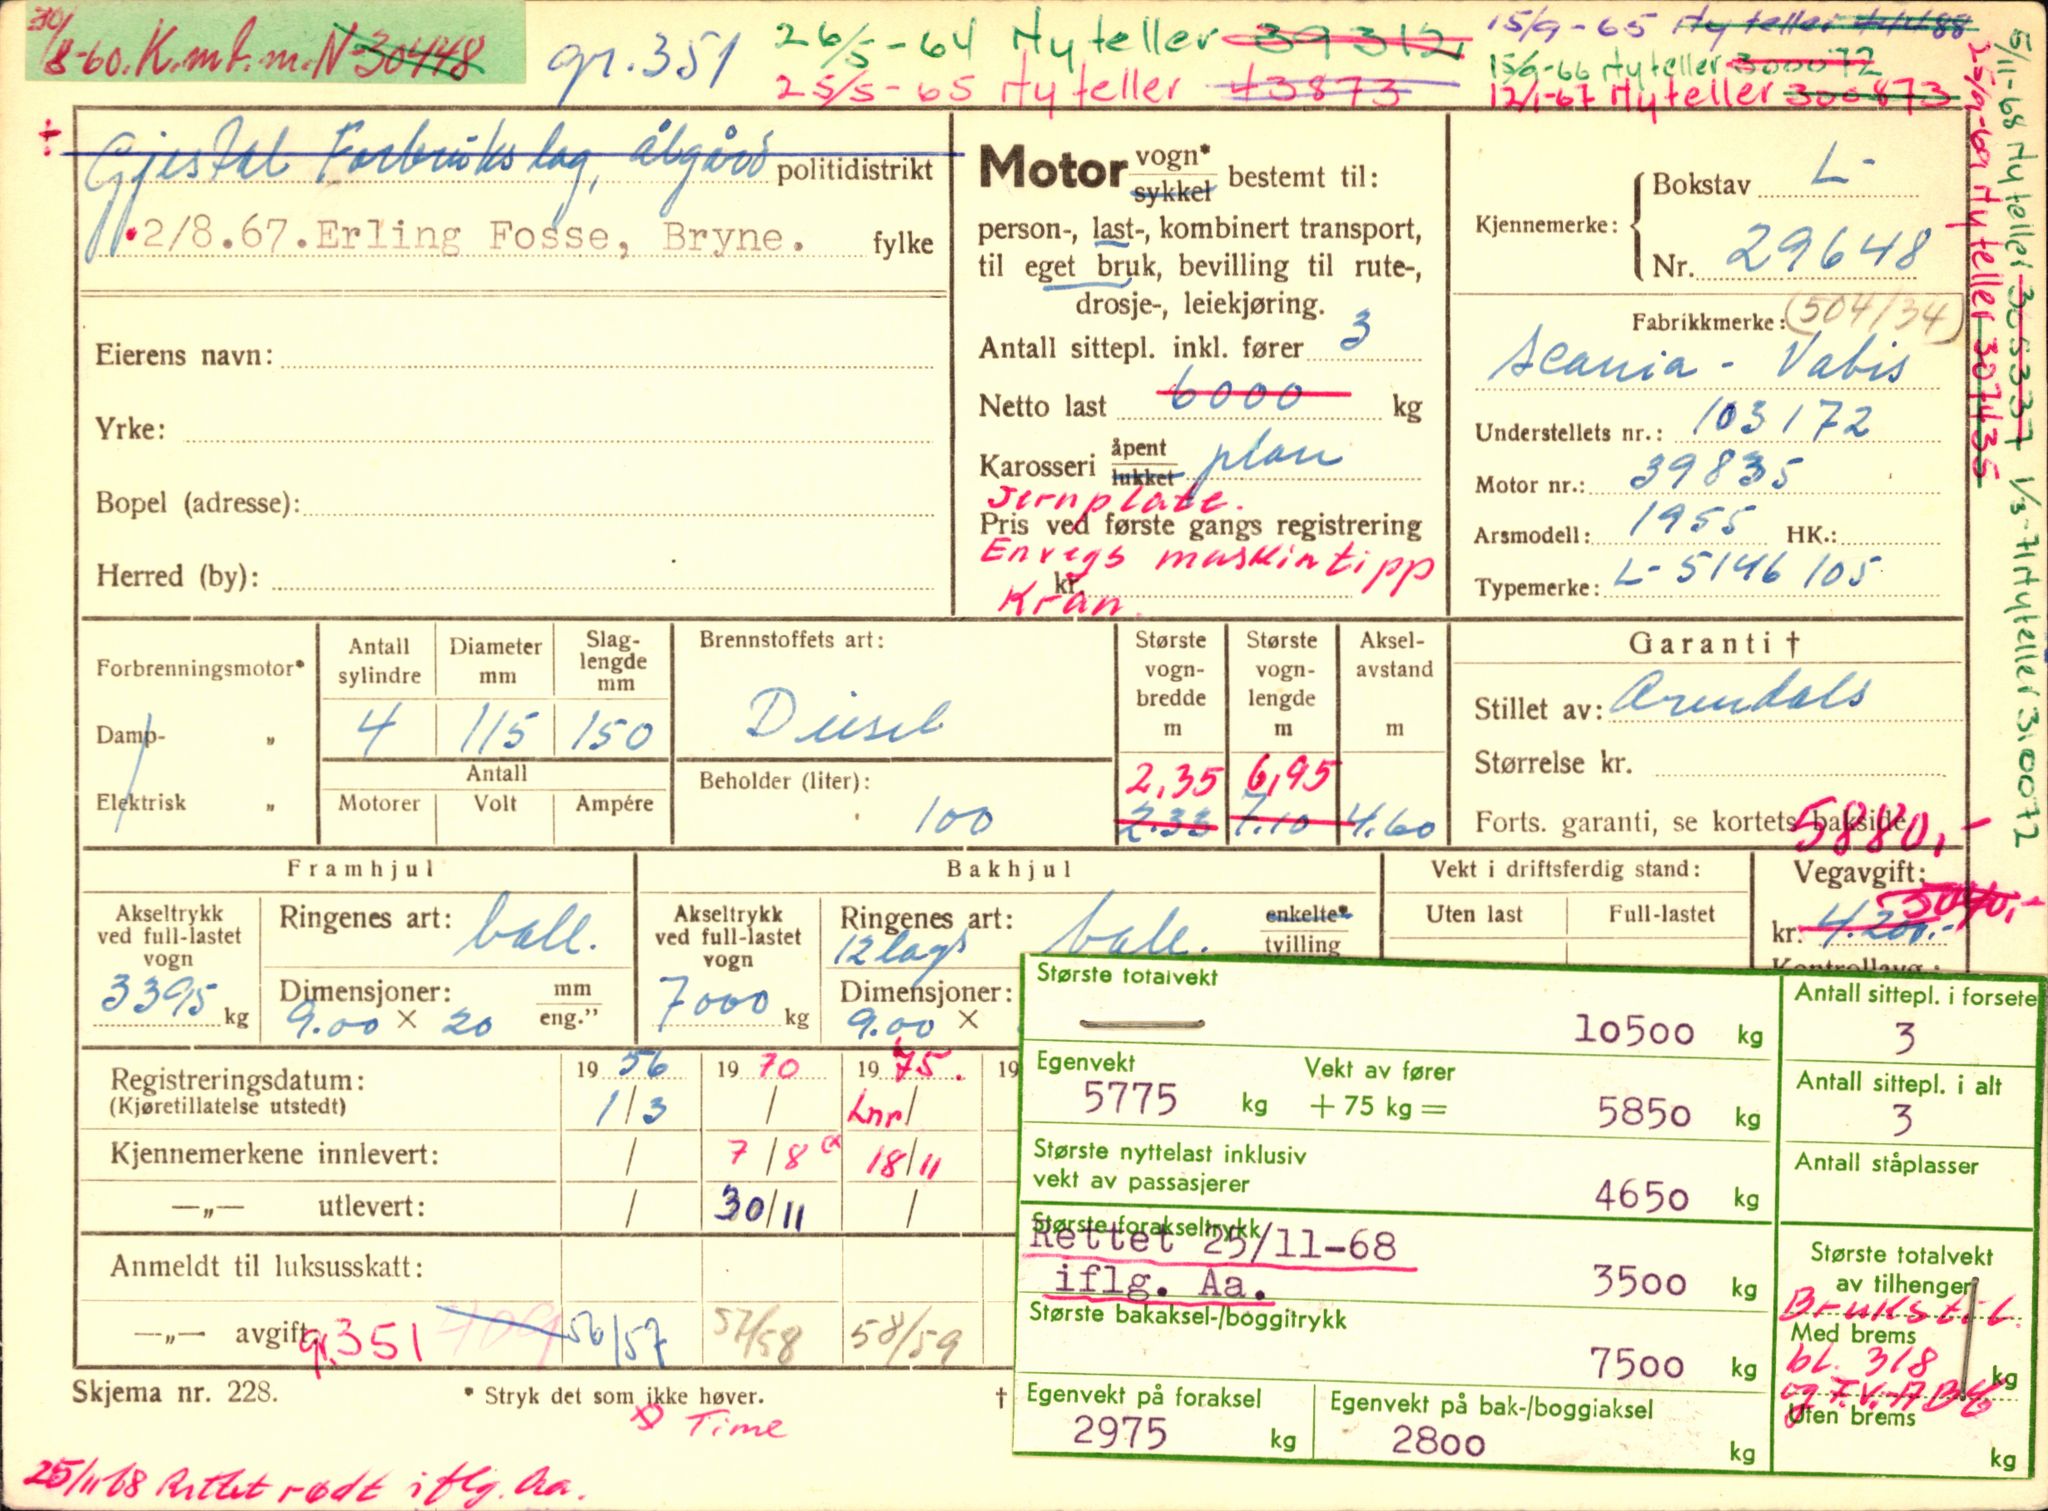 30/8-60. K.mt.m. N-30448
gr. 351
26/5-64 Ny teller 39312
25/5-65 Ny teller 43873
15/9-65 Ny teller
15/9-66 Ny teller 300072
12/1-67 Ny teller 300873
5/11-68 Ny teller 305337 1/3-71 Ny teller 310072
25/9-69 Ny teller 307435
Gjestal Forbrukslag, Ålgård politidistrikt
2/8.67. Erling Fosse, Bryne. fylke
Eierens navn:
Yrke:
Bopel (adresse):
Herred (by):
Motor vogn* sykkel bestemt til:
person-, last-, kombinert transport,
til eget bruk, bevilling til rute-,
drosje-, leiekjøring.
Antall sittepl. inkl. fører 3
Netto last 6000 kg
Karosseri åpent lukket plan
Jernplate.
Pris ved første gangs registrering
Envegs maskintipp
kr.
Kran.
Kjennemerke: Bokstav L-
Nr. 29648
Fabrikkmerke: (504/34)
Scania - Vabis
Understellets nr.: 103172
Motor nr.: 39835
Årsmodell: 1955 HK.:
Typemerke: L-5146 105
Forbrenningsmotor*
Damp- „
Elektrisk „
Antall sylindre
Diameter mm
Slag-lengde mm
4 115 150
Antall
Motorer Volt Ampére
Brennstoffets art:
Diesel
Beholder (liter):
100
Største vogn-bredde m
Største vogn-lengde m
Aksel-avstand m
2,35 6,95
2.33 7.10 4.60
Garanti †
Stillet av: Arendals
Størrelse kr.
Forts. garanti, se kortets bakside
5880,-
Framhjul
Akseltrykk ved full-lastet vogn
3395 kg
Ringenes art: ball.
Dimensjoner: mm eng.”
9.00 × 20
Bakhjul
Akseltrykk ved full-lastet vogn
7000 kg
Ringenes art: enkelte* tvilling
12 lags ball.
Dimensjoner:
9.00 ×
Vekt i driftsferdig stand:
Uten last Full-lastet
Vegavgift:
5040,-
kr. 4.200.-
Kontrollavg.:
Registreringsdatum: 19 56 19 70 19 75. 19
(Kjøretillatelse utstedt) 1/3 / Lnr/
Kjennemerkene innlevert: / 7/8 18/11
—„— utlevert: / 30/11 /
Anmeldt til luksusskatt:
—„— avgift: gr. 351 409 56/57 57/58 58/59
Største totalvekt
10500 kg
Egenvekt Vekt av fører
5775 kg + 75 kg = 5850 kg
Største nyttelast inklusiv
vekt av passasjerer 4650 kg
Største forakseltrykk
Rettet 25/11-68
iflg. Aa. 3500 kg
Største bakaksel-/boggitrykk
7500 kg
Egenvekt på foraksel
2975 kg
Egenvekt på bak-/boggiaksel
2800 kg
Antall sittepl. i forsete
3
Antall sittepl. i alt
3
Antall ståplasser
Største totalvekt
av tilhenger
Brukstil.
Med brems
bl. 318 kg
og T.V.
Uten brems
kg
Skjema nr. 228.
* Stryk det som ikke høver.
†
Time
25/11 68 Rettet rødt iflg. Aa.